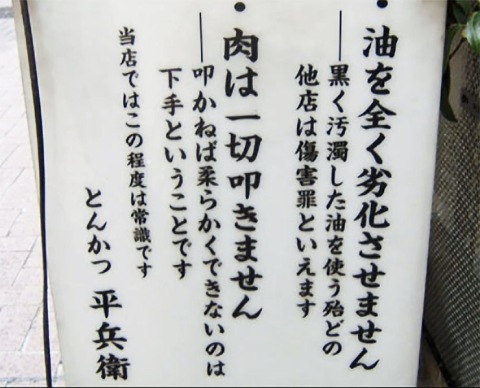 ・油を全く劣化させません
──黒く汚濁した油を使う殆どの
他店は傷害罪といえます
・肉は一切叩きません
──叩かねば柔らかくできないのは
下手ということです
当店ではこの程度は常識です
とんかつ 平兵衛